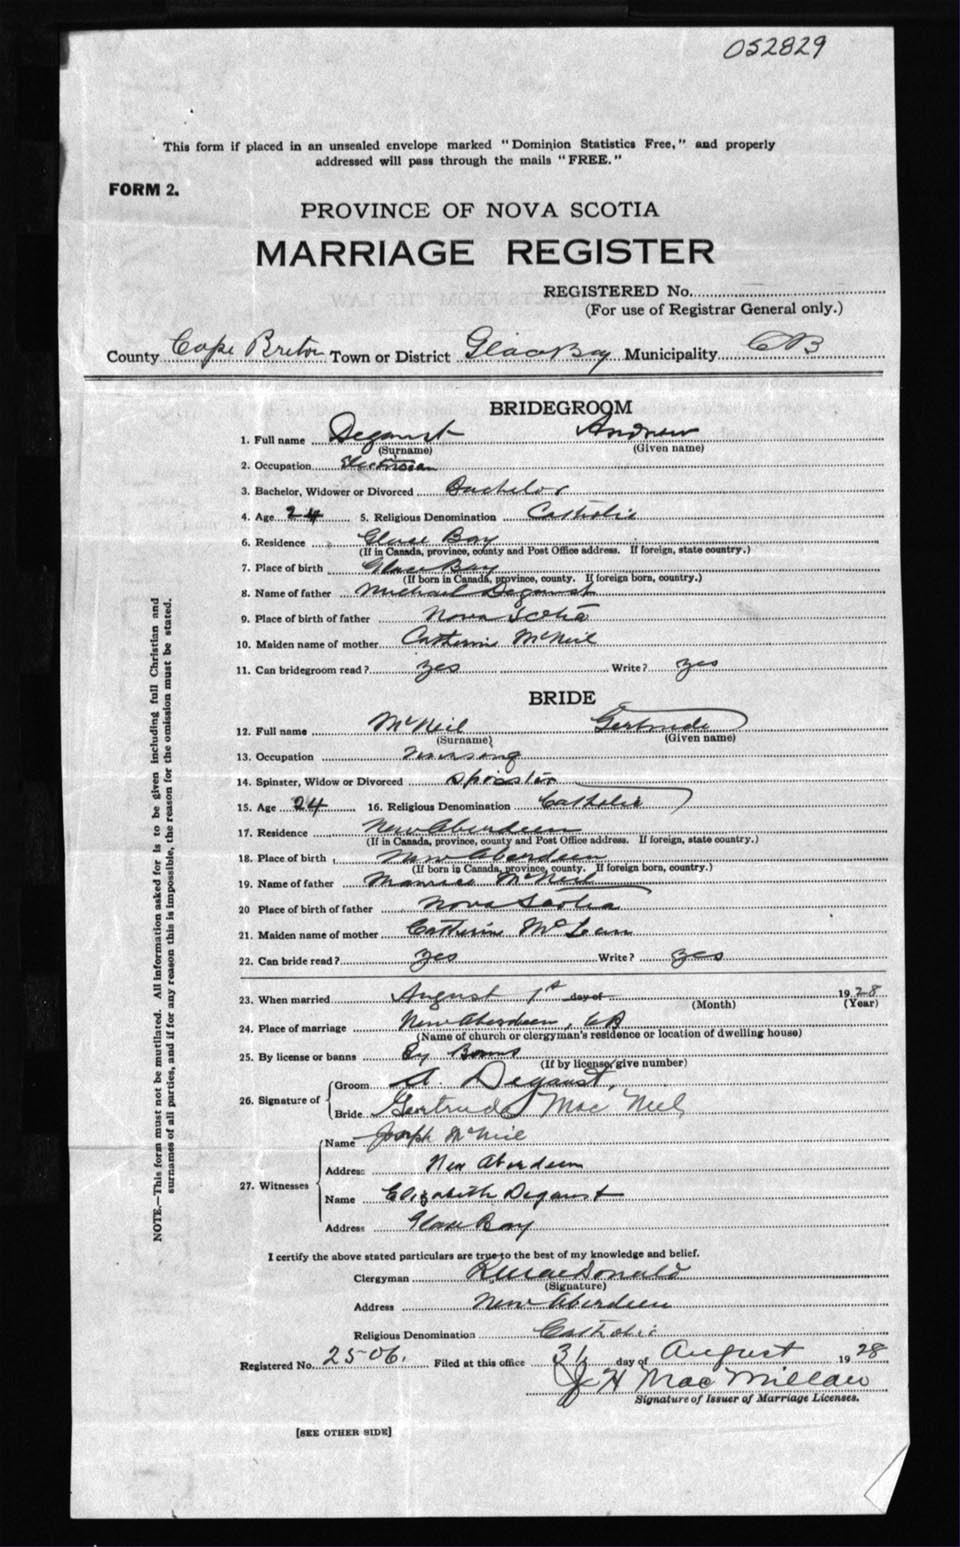 052829
This form if placed in an unsealed envelope marked "Dominion Statistics Free," and properly
addressed will pass through the mails "FREE."
FORM 2.
PROVINCE OF NOVA SCOTIA
MARRIAGE REGISTER
REGISTERED No.
(For use of Registrar General only.)
County Cape Breton Town or District Glace Bay Municipality CB
BRIDEGROOM
1. Full name Degaust Andrew
(Surname) (Given name)
2. Occupation Electrician
3. Bachelor, Widower or Divorced Bachelor
4. Age 24 5. Religious Denomination Catholic
6. Residence Glace Bay
(If in Canada, province, county and Post Office address. If foreign, state country.)
7. Place of birth Glace Bay
(If born in Canada, province, county. If foreign born, country.)
8. Name of father Michael Degaust
9. Place of birth of father Nova Scotia
10. Maiden name of mother Catherine McNeil
11. Can bridegroom read? yes Write? yes
BRIDE
12. Full name McNeil Gertrude
(Surname) (Given name)
13. Occupation Nursing
14. Spinster, Widow or Divorced Spinster
15. Age 24 16. Religious Denomination Catholic
17. Residence New Aberdeen
(If in Canada, province, county and Post Office address. If foreign, state country.)
18. Place of birth New Aberdeen
(If born in Canada, province, county. If foreign born, country.)
19. Name of father Maurice McNeil
20 Place of birth of father Nova Scotia
21. Maiden name of mother Catherine McLean
22. Can bride read? yes Write? yes
23. When married August 1st day of 1928
(Month) (Year)
24. Place of marriage New Aberdeen, CB
(Name of church or clergyman's residence or location of dwelling house)
25. By license or banns By Banns
(If by license, give number)
26. Signature of Groom A. Degaust.
Bride Gertrude Mac Neil
27. Witnesses Name Joseph McNeil
Address New Aberdeen
Name Elizabeth Degaust
Address Glace Bay
I certify the above stated particulars are true to the best of my knowledge and belief.
Clergyman MacDonald
(Signature)
Address New Aberdeen
Religious Denomination Catholic
Registered No. 2506. Filed at this office 31 day of August 1928
J H MacMillan
Signature of Issuer of Marriage Licenses.
[SEE OTHER SIDE]
NOTE.—This form must not be mutilated. All information asked for is to be given including full Christian and
surnames of all parties, and if for any reason this is impossible, the reason for the omission must be stated.